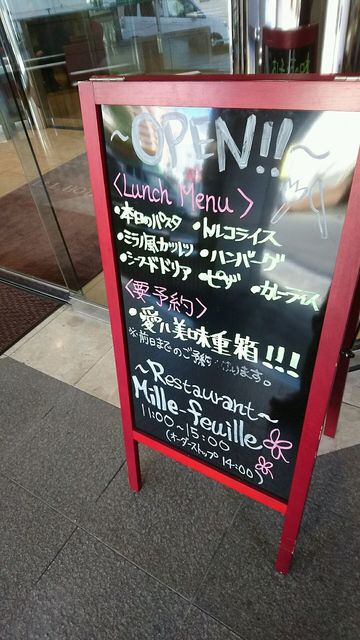 ~OPEN!!~
<Lunch Menu>
・本日のパスタ ・トルコライス
・ミラノ風カツレツ ・ハンバーグ
・シーフードドリア ・ピザ ・カレーライス
<要予約>
・愛い美味重箱!!!
※前日までのご予約 ります。
~Restaurant~
Mille-feuille
11:00~15:00
(オーダーストップ 14:00)